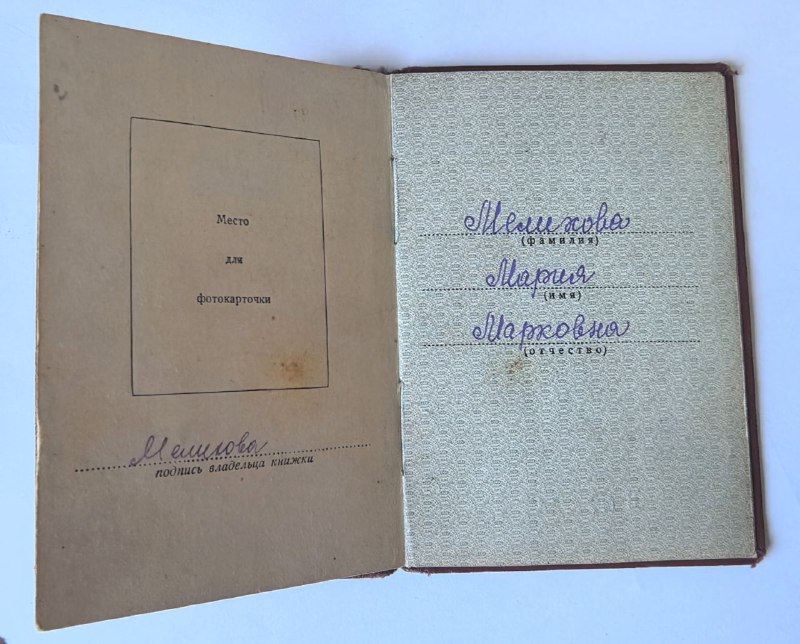 Место
для
фотокарточки
Мелихова
подпись владельца книжки
Мелихова
(фамилия)
Мария
(имя)
Марковна
(отчество)